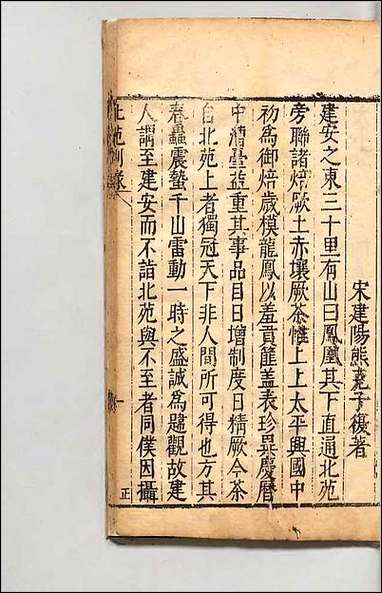 宋建陽熊克子復著
建安之東三十里有山曰鳳凰其下直通北苑
旁聯諸焙厥土赤壤厥茶惟上上太平興國中
初為御焙歲模龍鳳以羞貢篚盖表珍異慶曆
中漕臺益重其事品目日增制度日精厥今茶
自北苑上者獨冠天下非人間所可得也方其
春蟲震蟄千山雷動一時之盛誠為韙觀故建
人謂至建安而不詣北苑與不至者同僕因攝
北苑別錄
正